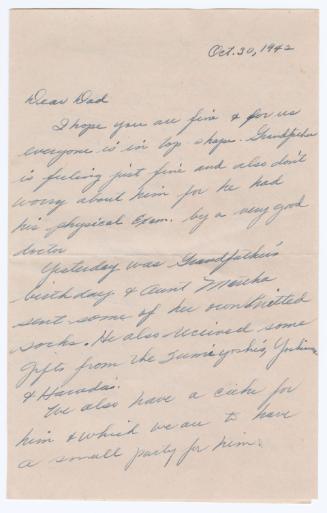 Oct. 30, 1942
Dear Dad
I hope you are fine & for us
everyone is in top shape. Grandfather
is feeling just fine and also don't
worry about him for he had
his physical exam. by a very good
doctor
Yesterday was Grandfather's
birthday & Aunt Martha
sent some of her own knitted
socks. He also received some
gifts from the
& Harada's.
We also have a cake for
him & which we are to have
a small party for him.